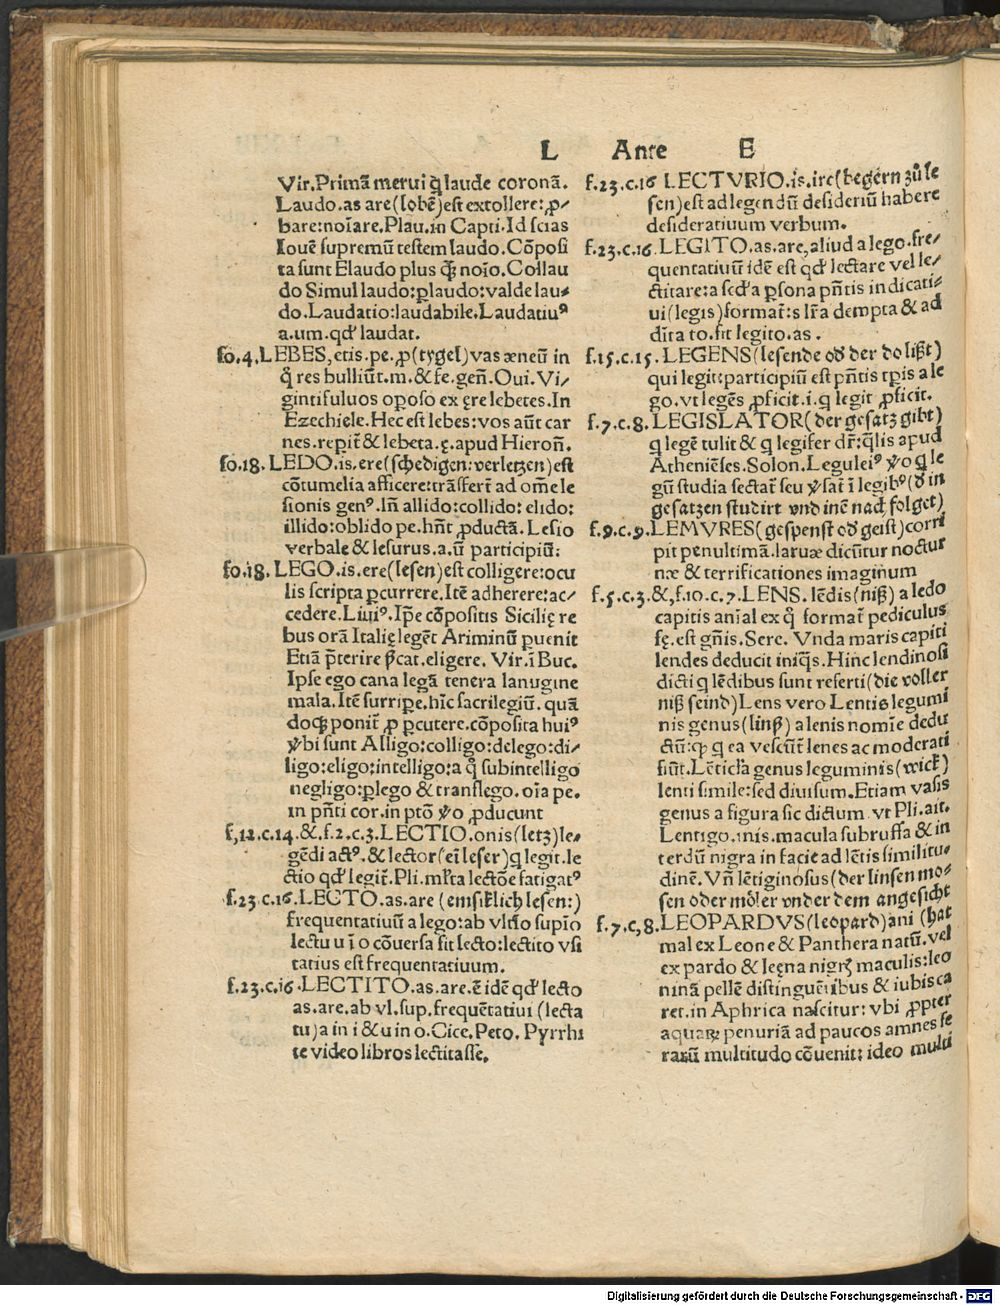 L Ante E
Vir.Primã merui ą̃ laude coronã.
Laudo.as are(lobẽ)est extollere:ꝓ/
bare:noĩare.Plau.in Capti.Id scias
Iouẽ supremũ testem laudo.Cõposi
ta sunt Elaudo plus ꝗ̃ noĩo.Collau
do Simul laudo:ꝑlaudo:valde lau⸗
do.Laudatio:laudabile.Laudatiuꝰ
a.um.qđ laudat.
fo.4.LEBES,etis.pe.ꝓ(tygel)vas æneũ in
q̊ res bulliũt.m.&fe.geñ.Oui.Vi/
gintifuluos oposo ex ęre lebetes.In
Ezechiele.Hec est lebes:vos aũt car
nes.repiť & lebeta.ę.apud Hieroñ.
fo.18.LEDO.is.ere(schedigen:verletzen)est
cõtumelia afficere:trãsferť ad om̃e le
sionis genꝰ.Iñ allido:collido:elido:
illido:oblido pe.hñt ꝓductã.Lesio
verbale & lesurus.a.ũ participiũ:
fo.18.LEGO.is.ere(lesen)est colligere:ocu
lis scripta ꝑcurrere.Itẽ adherere:ac/
cedere.Liuiꝰ.Ip̃e cõpositis Sicilię re
bus orã Italię legẽs Ariminũ puenit
Etiã p̃terire p̃cat.eligere.Vir.ĩ Buc.
Ipse ego cana legã tenera lanugine
mala.Itẽ surripe.hĩc sacrilegiũ.quã
doq; poniť ꝓ ꝑcutere.cõposita huiꝰ
ꝟbi sunt Alligo:colligo:delego:di/
ligo:eligo:intelligo:a q̊ subintelligo
negligo:ꝑlego & translego.oĩa pe.
in pñti cor.in ptõ ꝟo ꝓducunt
f,12.c.14.&.f.2.c.3.LECTIO.onis(letz)le⸗
gẽdi actꝰ.& lector(eĩ leser)q legit.le
ctio qđ legiť.Pli.ml̃ta lectõe fatigatꝰ
f.23.c.16.LECTO.as.are(emsiklich lesen:)
frequentatiuũ a lego:ab vltĩo supĩo
lectu u ĩ o cõuersa fit lecto:lectito vsi
tatius est frequentatiuum.
f.23.c.16.LECTITO.as.are.ẽ idẽ qđ lecto
as.are.ab vl.sup.frequẽtatiui(lecta
tu)a in i & u in o.Cice.Peto.Pyrrhi
te video libros lectitasse.
f.23.c.16 LECTVRIO.is.ire(begern zů le
sen)est ad legendũ desideriũ habere
desideratiuum verbum.
f.23.c.16.LEGITO.as.are,aliud a lego.fre/
quentatiuũ idẽ est qđ lectare vel le/
ctitare:a secđa ꝑsona pñtis indicati⸗
ui(legis)format̃:s lr̃a dempta & ad
dĩta to.fit legito.as.
f.15.c.15.LEGENS(lesende ođ der do lißt)
qui legit:participiũ est pñtis tpĩs a le
go.vt legẽs ꝓficit.i.q legit ꝓficit.
f.7.c.8.LEGISLATOR(der gesatz gibt)
q legẽ tulit & q legifer dr̃:q̃lis apud
Atheniẽses.Solon.Leguleiꝰ ꝟo q le
gũ studia sectať seu ꝟsať ĩ legibꝰ(đ in
gesatzen studirt vnd inẽ nach folget)
f.9.c.9.LEMVRES(gespenst ođ geist)corri
pit penultimã.laruæ dicũtur noctur
næ & terrificationes imaginum
f.5.c.3.&,f.10.c.7.LENS.lẽdis(niß)a ledo
capitis anĩal ex q̊ format̃ pediculus
fę.est gñis.Sere.Vnda maris capiti
lendes deducit iniq̃s.Hinc lendinosi
dicti q lẽdibus sunt referti(die voller
niß seind)Lens vero Lentis legumi
nis genus(linß)a lenis nomĩe dedu
ctũ:ꝙ q ea vescũť lenes ac moderati
fiũt.Lẽticl̃a genus leguminis(wick)
lenti simile:sed diuisum.Etiam vasis
genus a figura sic dictum.vt Pli.ait.
Lentigo.inis.macula subruffa & in
terdũ nigra in facie ad lẽtis similitu⸗
dinẽ.Vñ lẽtiginosus(der linsen mo⸗
sen oder möler vnder dem angesicht
f.7.c,8.LEOPARDVS(leopard)ani(hat
mal ex Leone & Panthera natũ.vel
ex pardo & leęna nigrꝝ maculis:leo
ninã pellẽ distinguẽtibus & iubis ca
ret.in Aphrica nascitur:vbi ꝓpter
aquaꝝ penuriã ad paucos amnes fe
rarũ multitudo cõuenit:ideo multi
Digitalisierung gefördert durch die Deutsche Forschungsgemeinschaft - DFG